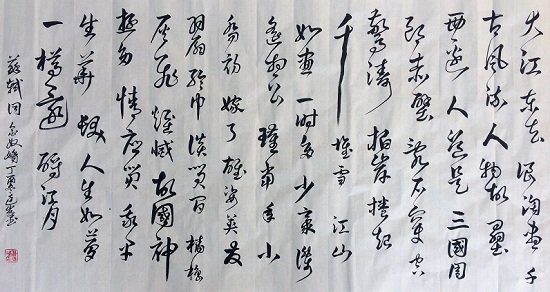 大江东去浪淘尽千
古风流人物故垒
西边人道是三國周
郎赤壁乱石穿空
惊涛拍岸捲起
千堆雪江山
如画一时多少豪杰
遥想公瑾当年小
乔初嫁了雄姿英发
羽扇纶巾谈笑间樯橹
灰飞烟灭故國神
遊多情应笑我早
生华髮人生如梦
一樽还酹江月
苏轼词念奴娇丁酉